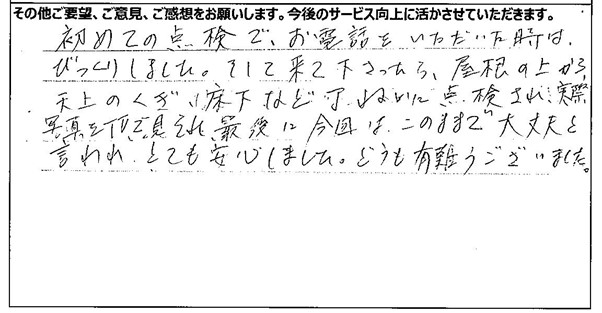 その他ご要望、ご意見、ご感想をお願いします。今後のサービス向上に活かさせていただきます。
初めての点検で、お電話をいただいた時は、
びっくりしました。そして来て下さったら、屋根の上から
天上のくぎ、床下など丁ねいに点検され、実際
写真を 見され、最後に今回はこのままで大丈夫と
言われ、とても安心しました。どうも有難うございました。